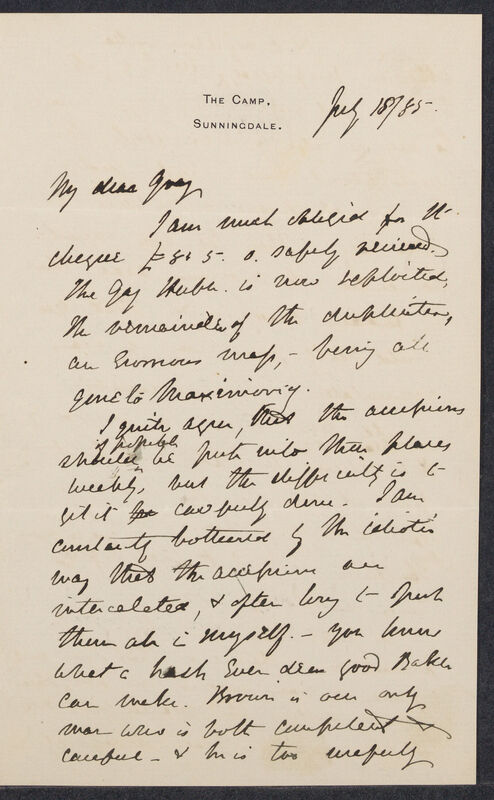 THE CAMP,
SUNNINGDALE.
July 18/85.
My dear Gray
I am much obliged for the
cheque £86 5. 0. safely received.
The Gay Herb. is now exploited,
the remainder of the duplicates,
an Enormous mass, – being all
gone to Maximovicz.
I quite agree, that the accessions
if possible
should be put into their places
weekly, but the difficulty is to
get it carefully done. I am
constantly bothered by the idiotic
way that the accessions are
intercalated, & often long to put
them all in myself. – you know
what a hash Even dear good Baker
can make. Brown is our only
man who is both competent &
careful – & he is too